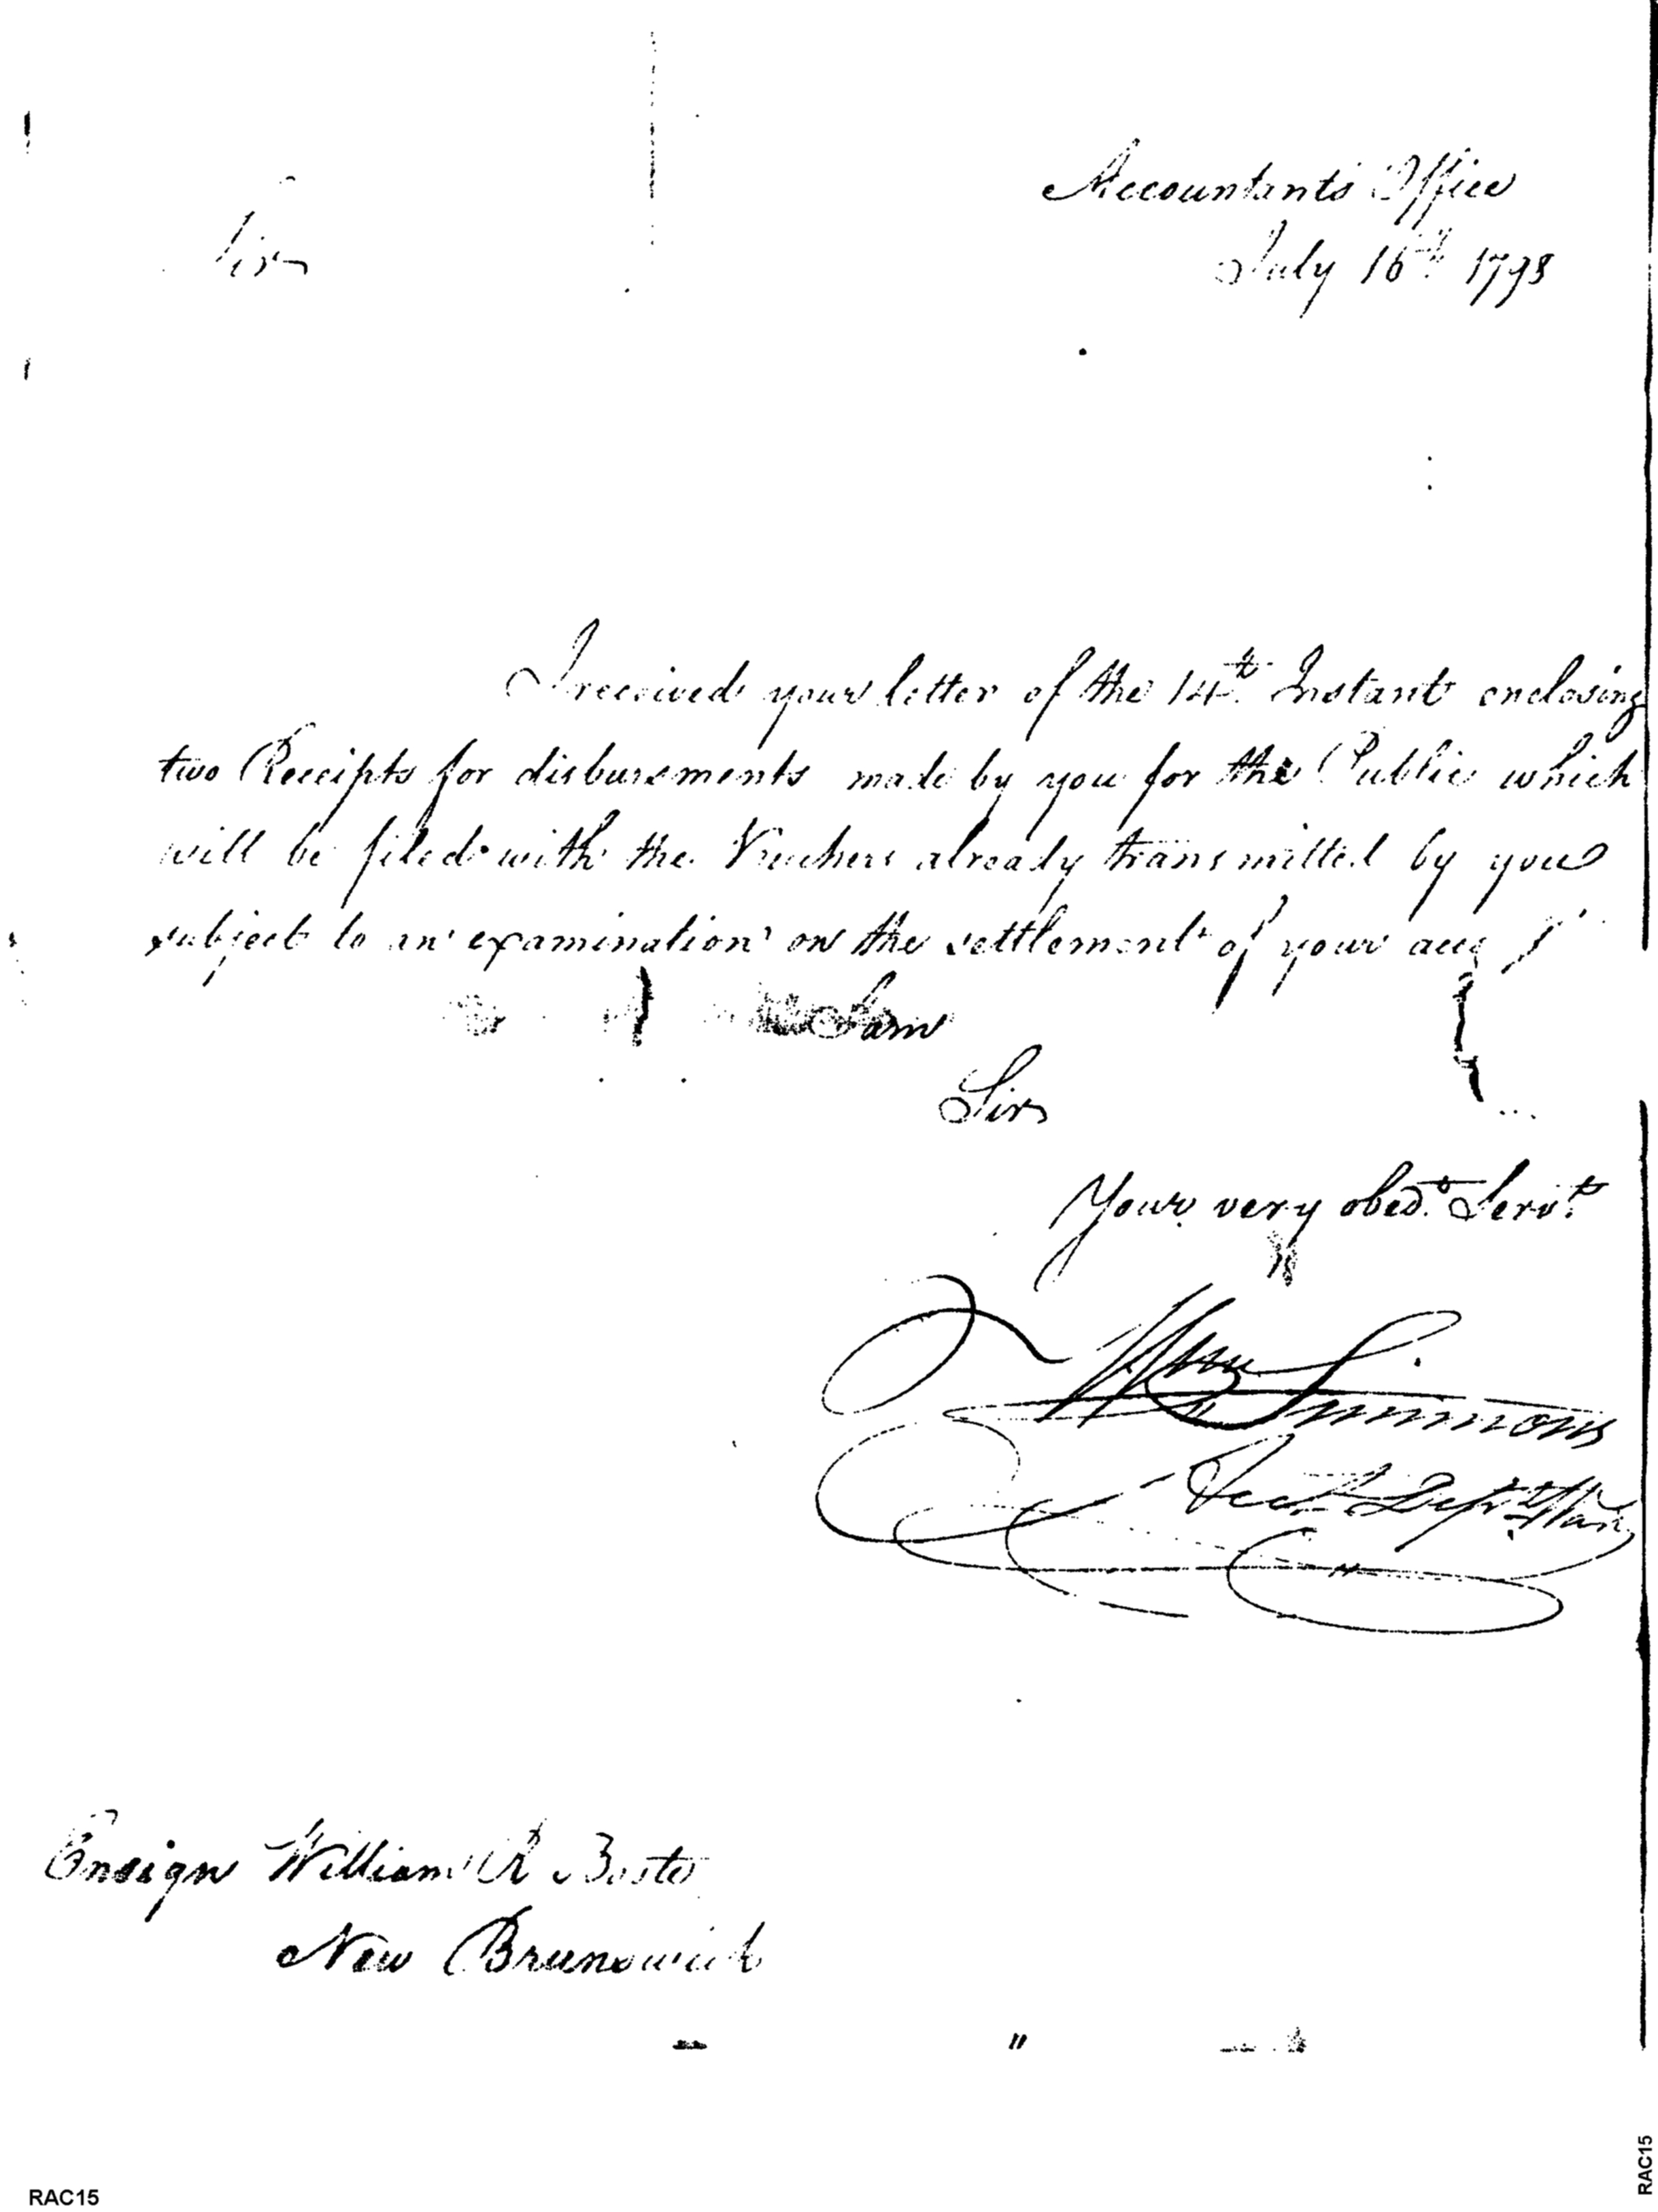 Accountants Office
July 16th 1798
Sir
I received your letter of the 14th Instant enclosing
two Receipts for disbursements made by you for the Public which
will be filed with the Vouchers already transmitted by you
subject to an examination on the settlement of your
I am
Sir
Your very obedt. Servt.
Wm Simmons
Acct. Dept. War
Ensign William R Boote
New Brunswick
RAC15
RAC15